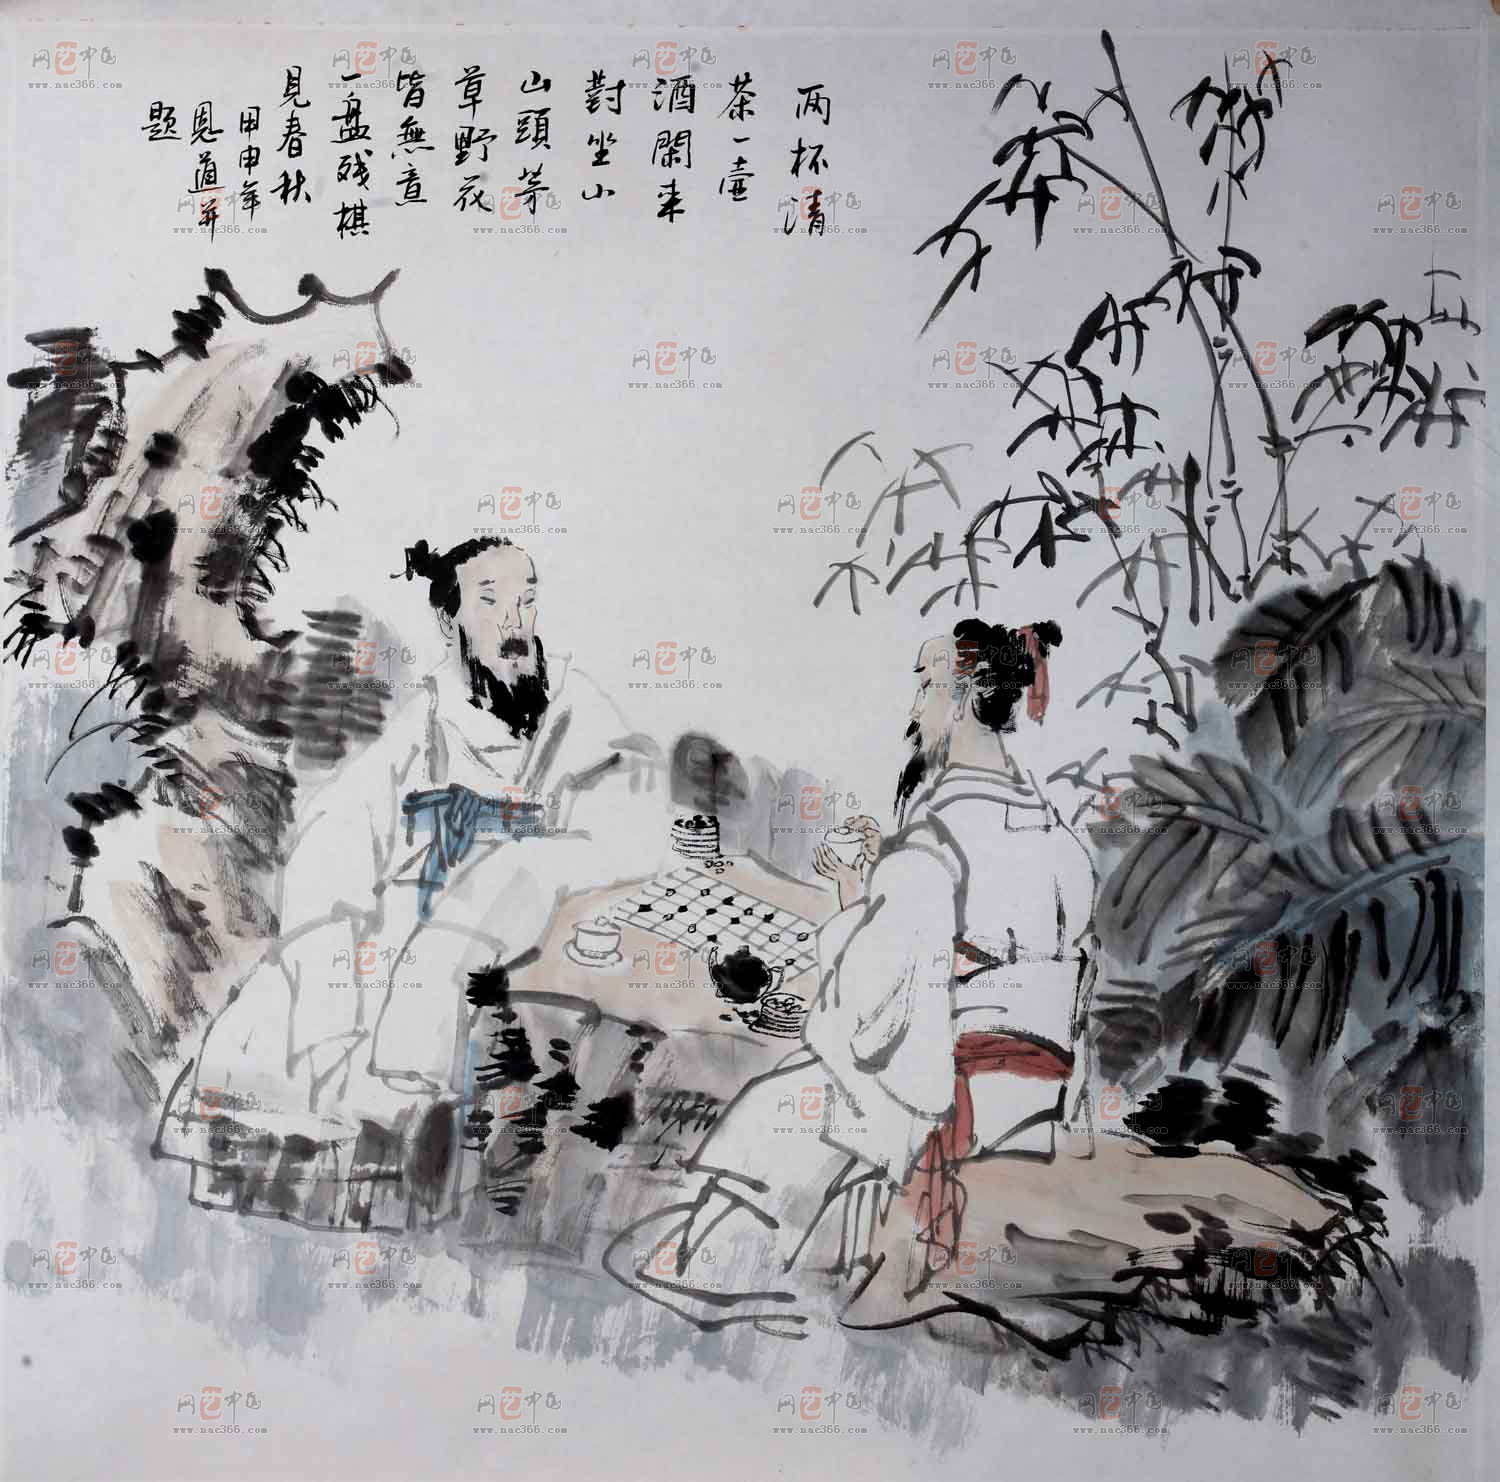 两杯清
茶一壶
酒閑来
對坐小
山頭芳
草野花
皆無意
一盘残棋
見春秋
甲申年
恩道并
题
网艺中国
www.nac366.com